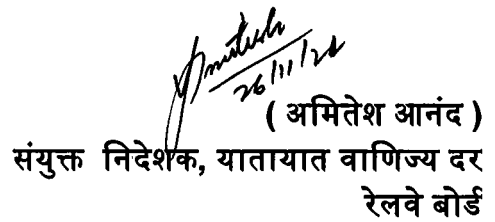 Amitesh
26/11/21
( अमितेश आनंद )
संयुक्त निदेशक, यातायात वाणिज्य दर
रेलवे बोर्ड